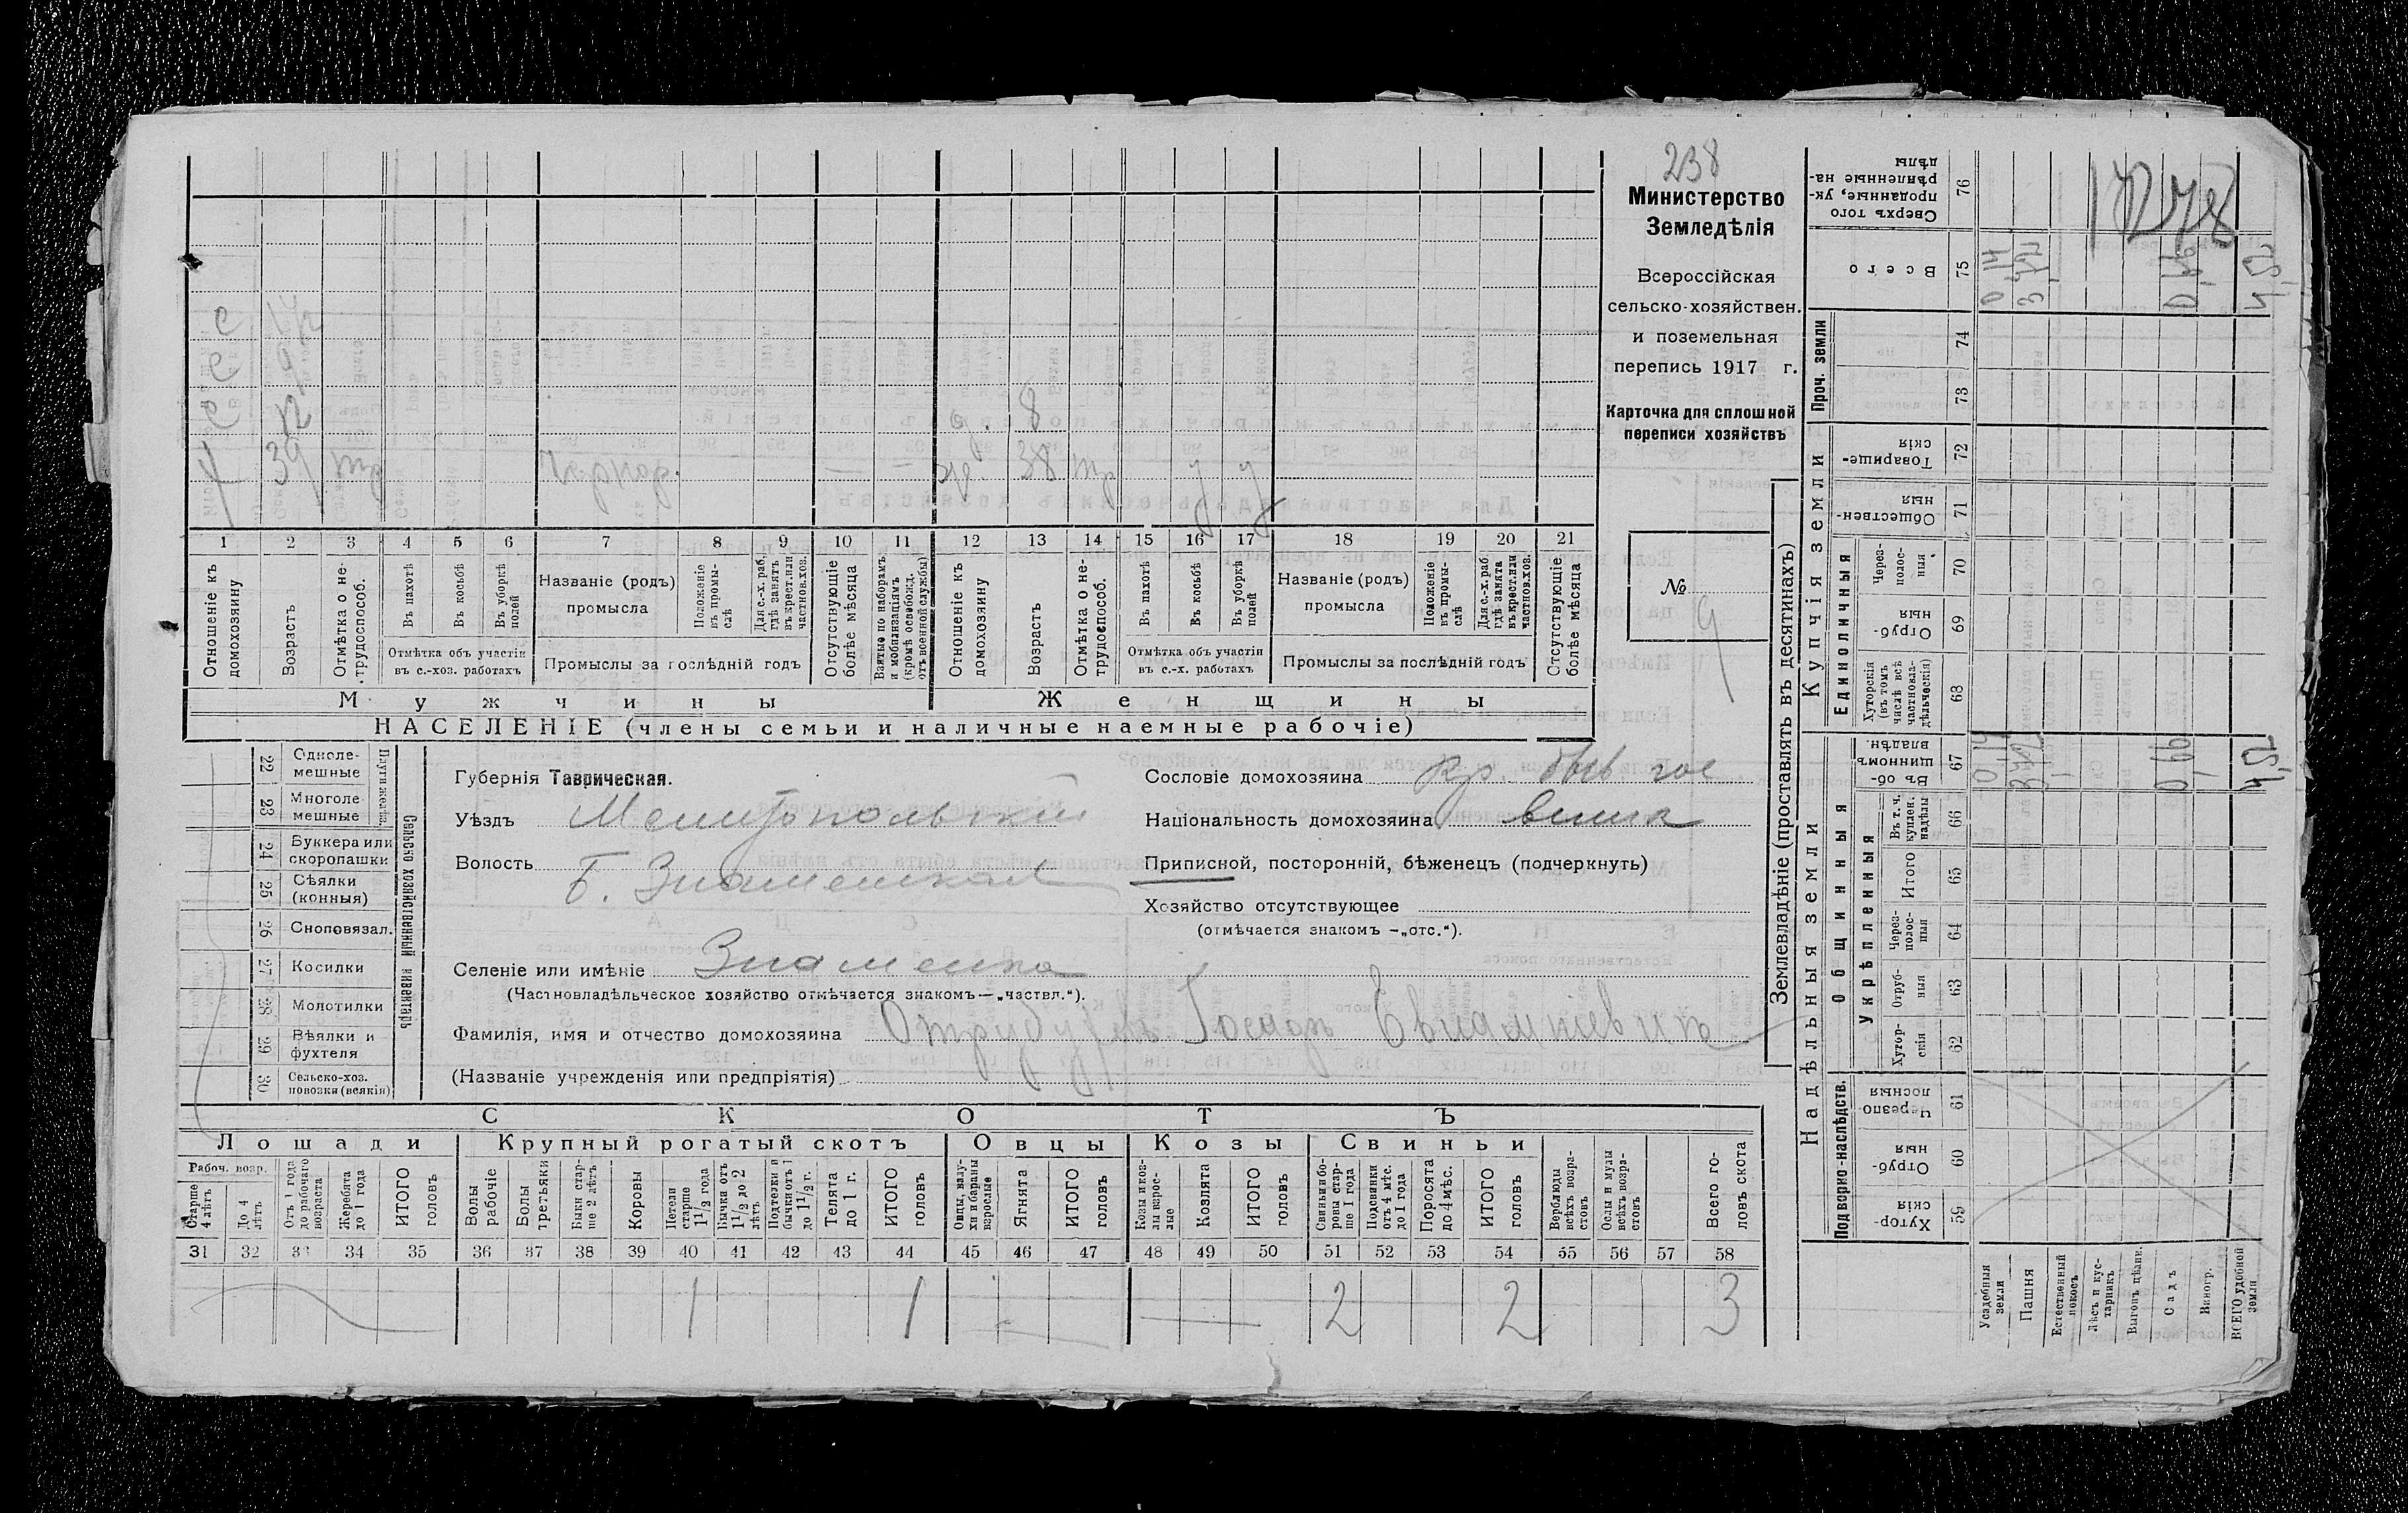 238
Министерство
Земледѣлія
Всероссійская
сельско-хозяйствен.
и поземельная
перепись 1917 г.
Карточка для сплошной
переписи хозяйствъ
№ 9
х 39
с 12
с 9
с
ж. 38
д. 8
1 2 3 4 5 6 7 8 9 10 11 12 13 14 15 16 17 18 19 20 21
Отношеніе къ домохозяину
Возрастъ
Отмѣтка о не-трудоспособ.
Въ пахотѣ
Въ косьбѣ
Въ уборкѣ полей
Отмѣтка объ участіи въ с.-хоз. работахъ
Названіе (родъ) промысла
Положеніе въ промы-слѣ
Для с.-х. раб. гдѣ занятъ въ крест. или частнов. хоз.
Промыслы за послѣдній годъ
Отсутствующіе болѣе мѣсяца
Взятые по наборамъ и мобилизаціямъ (кромѣ освобожд. отъ военной службы)
Отношеніе къ домохозяину
Возрастъ
Отмѣтка о не-трудоспособ.
Въ пахотѣ
Въ косьбѣ
Въ уборкѣ полей
Отмѣтка объ участіи въ с.-х. работахъ
Названіе (родъ) промысла
Положеніе въ промы-слѣ
Для с.-х. раб. гдѣ занята въ крест. или частнов. хоз.
Промыслы за послѣдній годъ
Отсутствующіе болѣе мѣсяца
Мужчины
Женщины
НАСЕЛЕНІЕ (члены семьи и наличные наемные рабочіе)
22 Одноле-мешные
23 Многоле-мешные
24 Буккера или скоропашки
25 Сѣялки (конныя)
26 Сноповязал.
27 Косилки
28 Молотилки
29 Вѣялки и фухтеля
30 Сельско-хоз. повозки (всякія)
Сельско хозяйственный инвентарь
Губернія Таврическая.
Уѣздъ Мелитопольскій
Волость Б. Знаменская
Селеніе или имѣніе Знаменка
(Частновладѣльческое хозяйство отмѣчается знакомъ—„частвл.“).
Фамилія, имя и отчество домохозяина
(Названіе учрежденія или предпріятія)
Сословіе домохозяина кр. быв гос
Національность домохозяина
Приписной, посторонній, бѣженецъ (подчеркнуть)
Хозяйство отсутствующее
(отмѣчается знакомъ —„отс.“).
СКОТЪ
Лошади
Крупный рогатый скотъ
Овцы
Козы
Свиньи
Рабоч. возр.
Старше 4 лѣтъ
До 4 лѣтъ
Отъ 1 года до рабочаго возраста
Жеребята до 1 года
ИТОГО головъ
Волы рабочіе
Волы третьяки
Быки стар-ше 2 лѣтъ
Коровы
Нетели старше 1 1/2 года
Бычки отъ 1 1/2 до 2 лѣтъ
Подтелки и бычки отъ 1 до 1 1/2 г.
Телята до 1 г.
ИТОГО головъ
Овцы, валу-хи и бараны взрослые
Ягнята
ИТОГО головъ
Козы и коз-лы взрос-лые
Козлята
ИТОГО головъ
Свиньи и бо-ровы стар-ше 1 года
Подсвинки отъ 4 мѣс. до 1 года
Поросята до 4 мѣс.
ИТОГО головъ
Верблюды всѣхъ возра-стовъ
Ослы и мулы всѣхъ возра-стовъ
Всего го-ловъ скота
31 32 33 34 35 36 37 38 39 40 41 42 43 44 45 46 47 48 49 50 51 52 53 54 55 56 57 58
1 1 2 2 3
Землевладѣніе (проставлять въ десятинахъ)
Надѣльныя земли
Купчія земли
Проч. земли
Подворно-наслѣдств.
Общинныя
Укрѣпленныя
Единоличныя
Хутор-скія 59
Отруб-ныя 60
Черезпо-лосныя 61
Хутор-скія 62
Отруб-ныя 63
Через-полос-ныя 64
Итого 65
Въ т. ч. куплен. надѣлы 66
Въ об-щинномъ владѣн. 67
Хуторскія (въ томъ числѣ всѣ частновла-дѣльческія) 68
Отруб-ныя 69
Через-полос-ныя 70
Обществен-ныя 71
Товарище-скія 72
73
74
Всего 75
Сверхъ того проданные, ук-рѣпленные на-дѣлы 76
Усадебныя земли
Пашня
Естественный покосъ
Лѣсъ и кус-тарникъ
Выгонъ цѣлин.
Садъ
Виногр.
ВСЕГО удобной земли